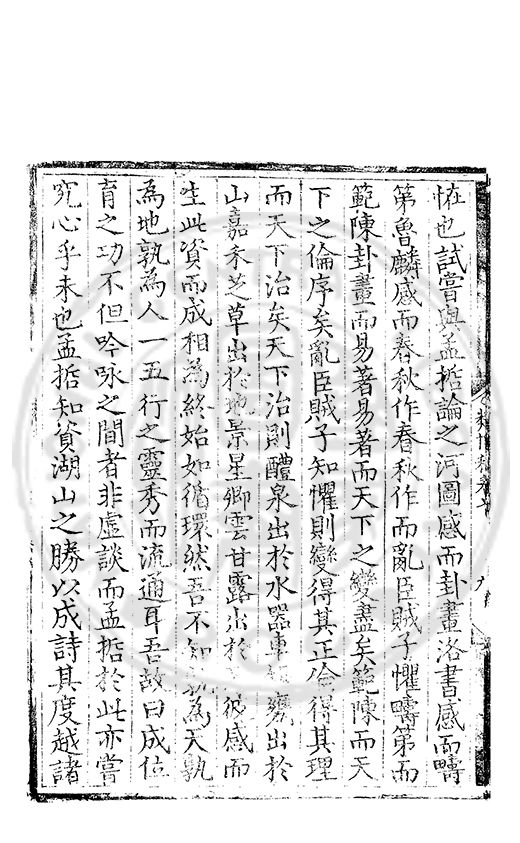 恠也試嘗與孟哲論之河圖感而卦畫洛書感而疇
第魯麟感而春秋作春秋作而亂臣賊子懼疇第而
範陳卦畫而易著易著而天下之變盡矣範陳而天
下之倫序矣亂臣賊子知懼則變得其正倫得其理
而天下治矣天下治則醴泉出於水器車 甕出於
山嘉禾芝草出於地景星卿雲甘露出於 彼感而
生此資而成相為終始如循環然吾不知孰為天孰
為地孰為人一五行之靈秀而流通耳吾故曰成位
育之功不但吟咏之間者非虛談而孟哲於此亦嘗
究心乎未也孟哲知資湖山之勝以成詩其度越諸